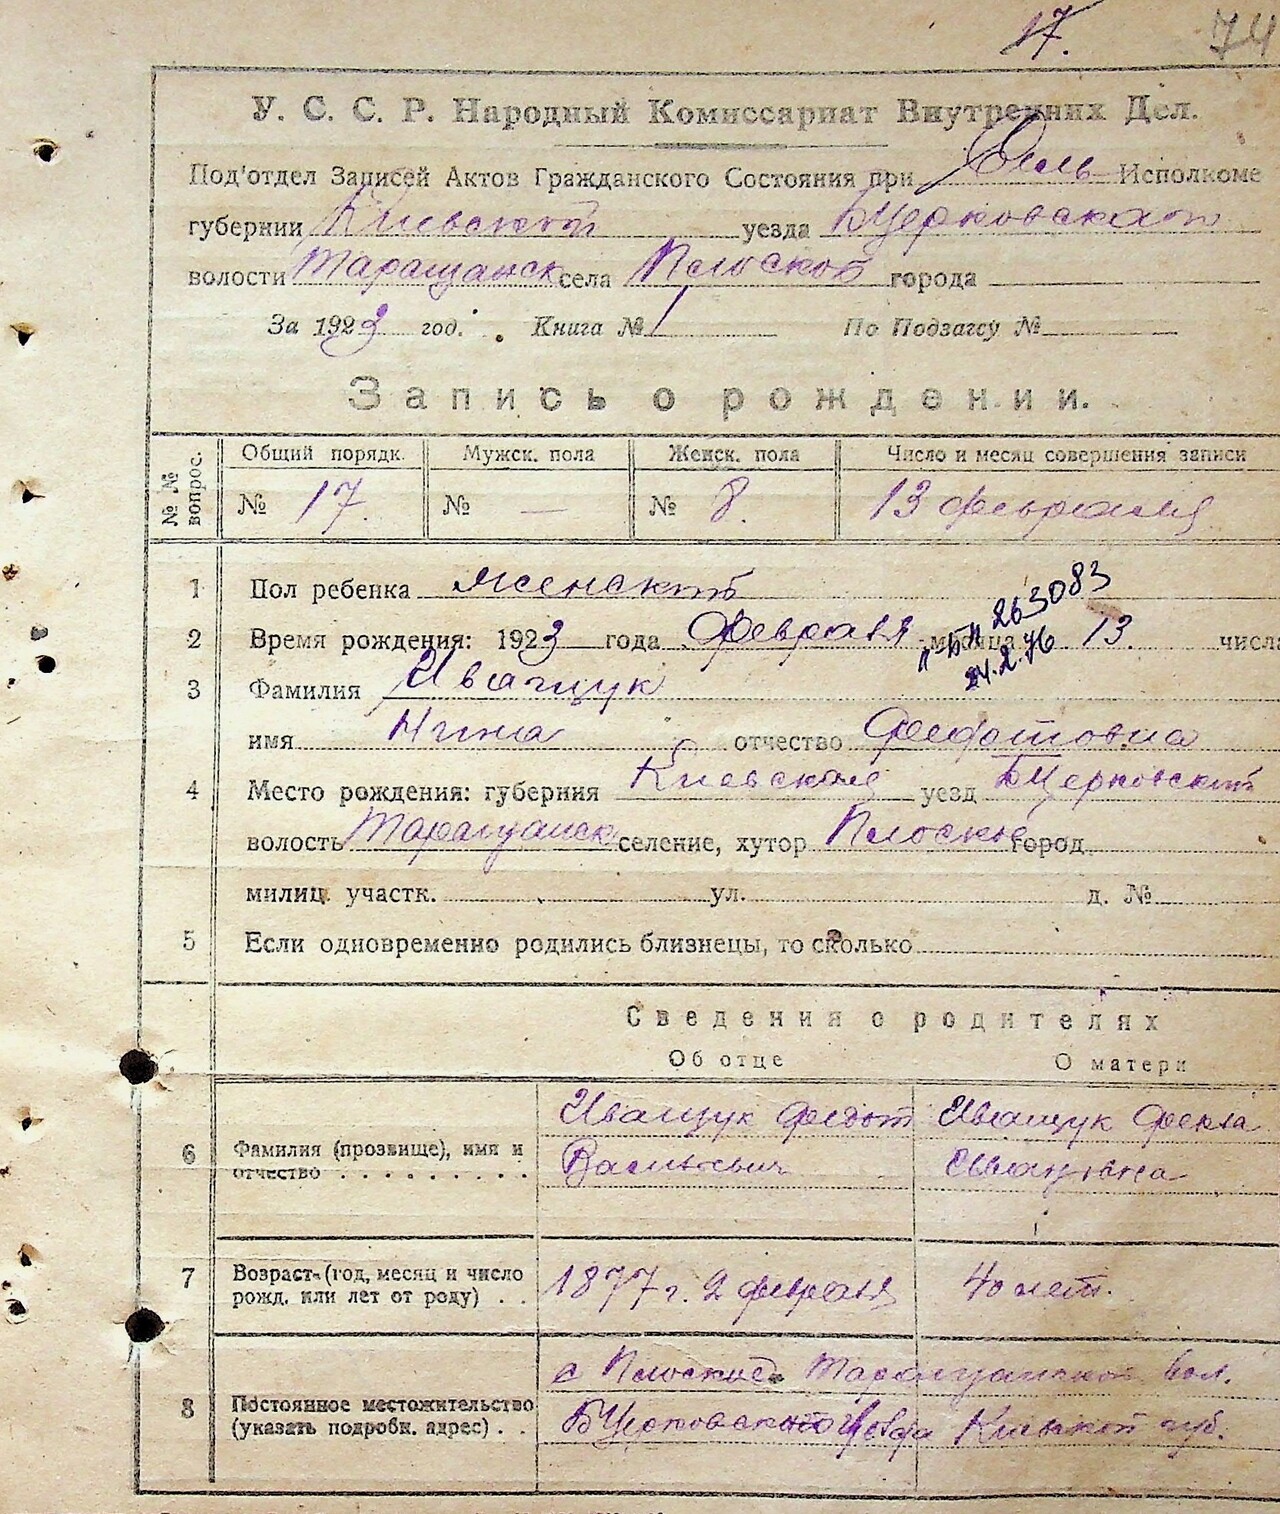 17. 74
У. С. С. Р. Народный Комиссариат Внутренних Дел.
Под'отдел Записей Актов Гражданского Состояния при Сель Исполкоме
губернии Киевской уезда БЦерковскаго
волости Таращанск села Плоской города
За 1923 год. Книга № 1 По Подзагсу №
Запись о рождении.
№ № вопрос.
Общий порядк. Мужск. пола Женск. пола Число и месяц совершения записи
№ 17. № — № 8. 13 февраля
1 Пол ребенка женский
2 Время рождения: 1923 года Февраля месяца 13. числа
"-Б" 263083
24.2.76
3 Фамилия Иващук
имя Нина отчество Федотовна
4 Место рождения: губерния Киевская уезд БЦерковский
волость Таращанск селение, хутор Плоское город
милиц. участк. ул. д. №
5 Если одновременно родились близнецы, то сколько
Сведения о родителях
Об отце О матери
6 Фамилия (прозвище), имя и отчество . . . . . . . . .
Иващук Федот
Васильевич
Иващук Фекла
Ивановна
7 Возраст (год, месяц и число рожд. или лет от роду) . .
1877 г. 2 февраля
40 лет.
8 Постоянное местожительство (указать подробн. адрес) . .
с Плоское Таращанской вол.
БЦерковского уезда Киевской губ.